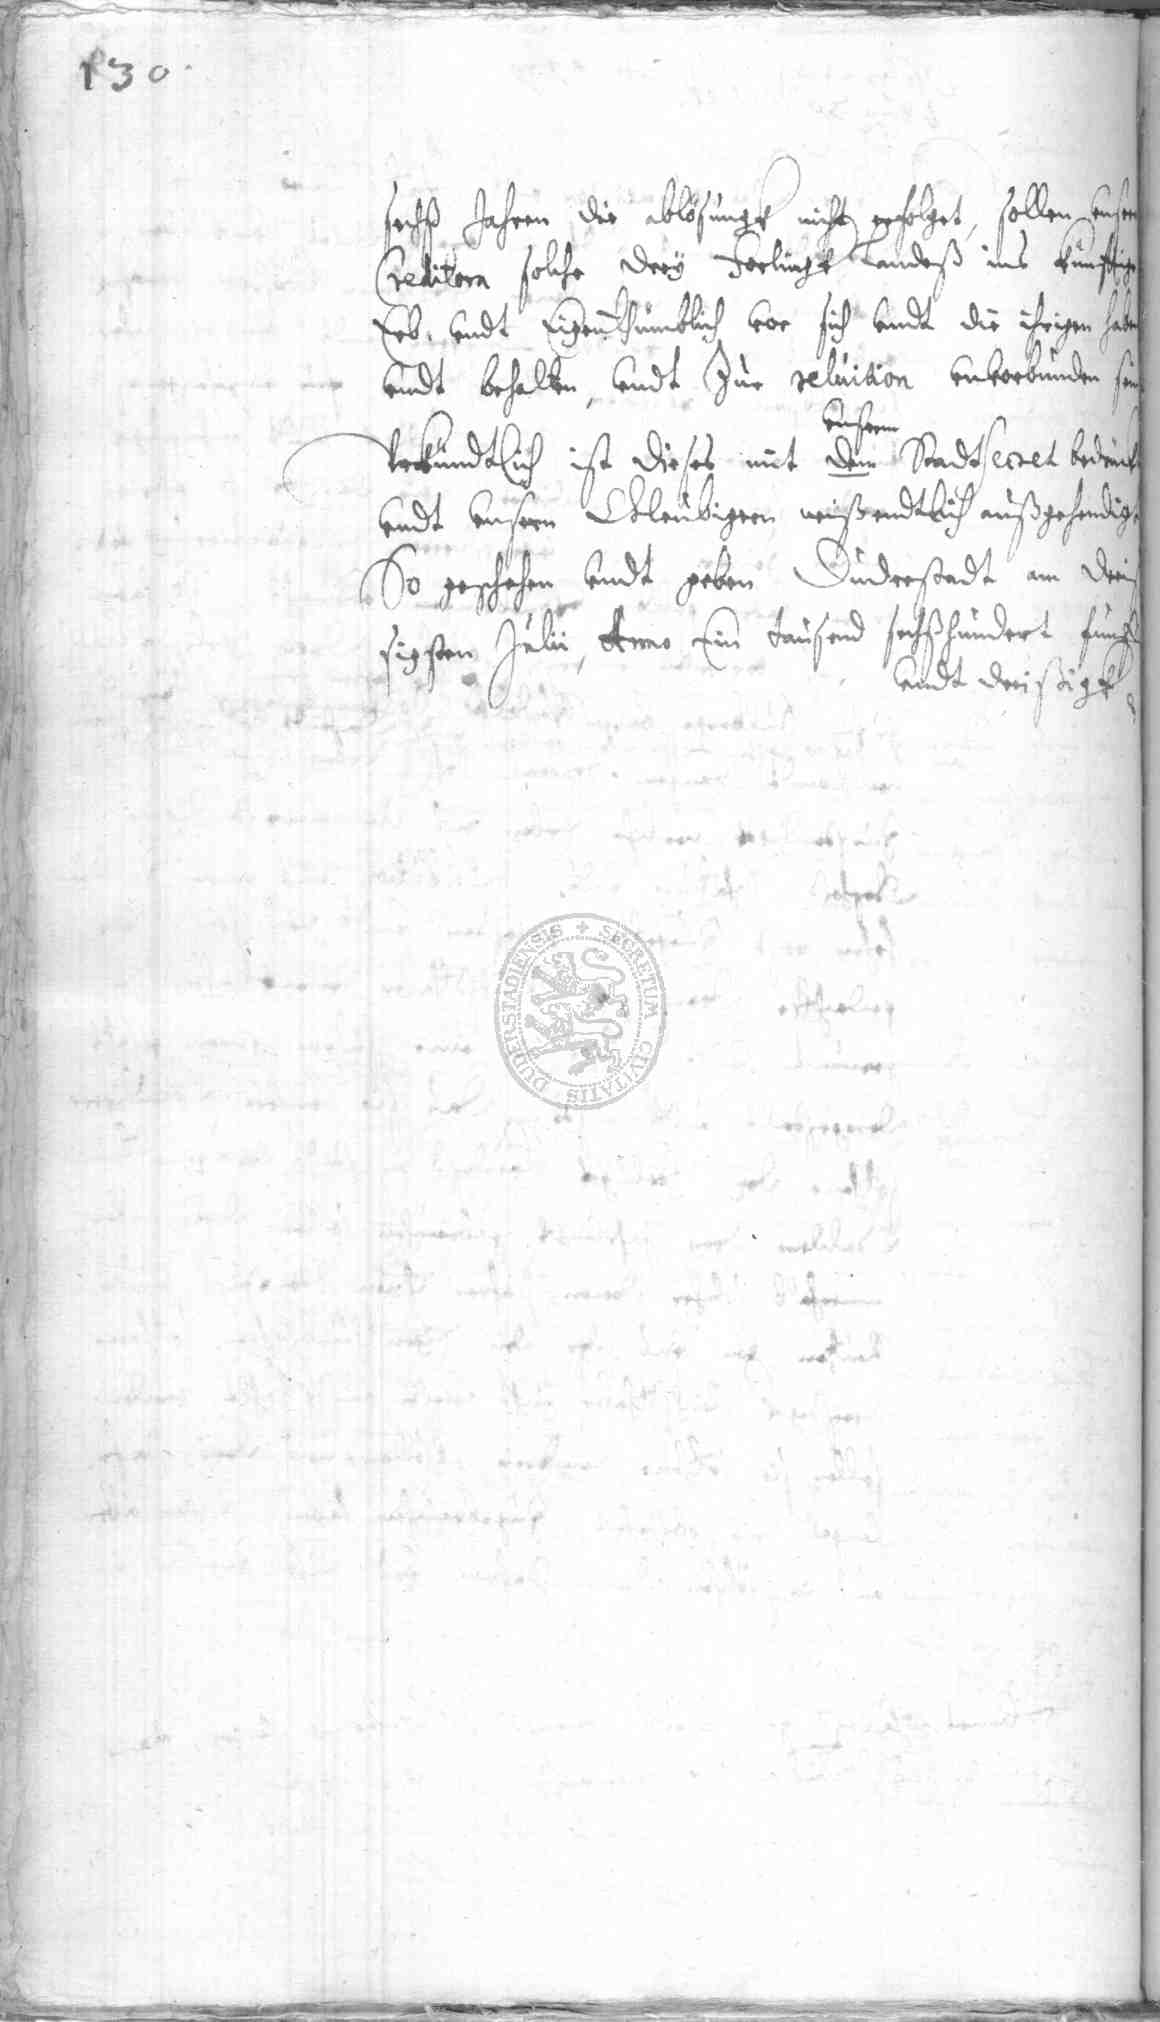 130.
sechß Jahren die ablösungk nicht erfolget, sollen unsere
Creditorn solche drey Vorlingk Landeß ins künfftige
Erb. undt Eigenthümblich vor sich undt die ihrigen haben
undt behalten, undt zur reluition unverbunden sein
unserm
Urkündtlich ist dieses mit dem Stadt secret bedruckt
undt unsern Gleubigern wißendtlich außgehendigt
So geschehen undt geben Duderstadt am dreis
sigsten Julii, Anno Ein tausend sechßhundert fünff
undt dreißigk
SECRETUM CIVITATIS DUDERSTADIENSIS